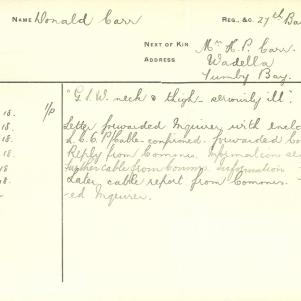 NAME Donald Carr REG., &C. 27th Ba
NEXT OF KIN Mr H. P. Carr
ADDRESS Wadella
Tumby Bay.
"G.S.W. neck & thigh - seriously ill".
18. Letter forwarded Inquirer with enclo
18. L.C.C. P/cable - confirmed. Forwarded Co
18. Reply from Commrs. Information
18. Further cable from Commrs. Information
18. Later cable report from Commrs.
ed Inquirer.